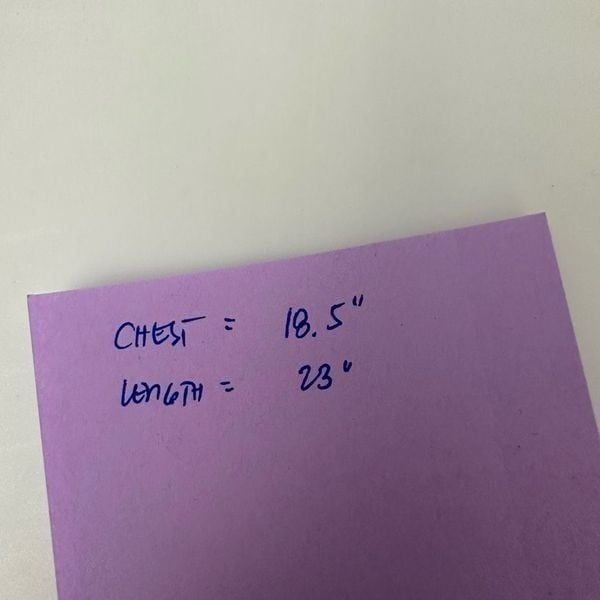 CHEST = 18.5"
LENGTH = 23"